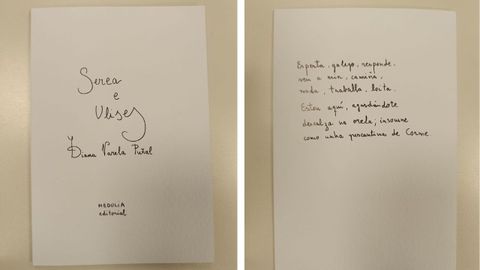 Serea
e
Ulises
Diana Varela Puñal
MEDULIA
editorial
Esperta, galego, responde,
ven a min, camiña,
nada, traballa, loita.
Estou aquí, agardándote
descalza na orela; insomne
como unha percebeira de Corme